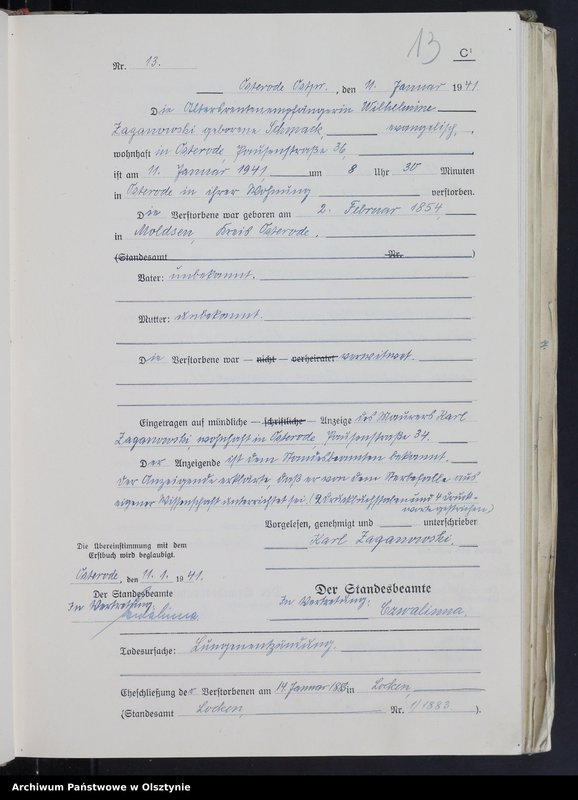 13
C¹
Nr. 13.
Osterode Ostpr. , den 11. Januar 1941.
Die Altersrentenempfängerin Wilhelmine
Zaganowski geborene Schmack, evangelisch,
wohnhaft in Osterode, Pausenstraße 36,
ist am 11. Januar 1941 um 8 Uhr 30 Minuten
in Osterode in ihrer Wohnung verstorben.
Die Verstorbene war geboren am 2. Februar 1854
in Moldsen, Kreis Osterode.
(Standesamt Nr. )
Vater: unbekannt.
Mutter: unbekannt.
Die Verstorbene war — nicht — verheiratet verwitwet.
Eingetragen auf mündliche — schriftliche — Anzeige des Maurers Karl
Zaganowski, wohnhaft in Osterode, Pausenstraße 34.
Der Anzeigende ist dem Standesbeamten bekannt.
Der Anzeigende erklärte, daß er von dem Sterbefalle aus
eigener Wissenschaft unterrichtet sei. (2 Druckbuchstaben und 4 Druck-
worte gestrichen)
Vorgelesen, genehmigt und unterschrieben
Karl Zaganowski.
Die Übereinstimmung mit dem
Erstbuch wird beglaubigt.
Osterode, den 11. 1. 1941.
Der Standesbeamte
In Vertretung:
Der Standesbeamte
In Vertretung: Czwalinna.
Todesursache: Lungenentzündung.
Eheschließung der Verstorbenen am 14. Januar 1883 in Locken,
(Standesamt Locken, Nr. 1/1883 ).
Archiwum Państwowe w Olsztynie